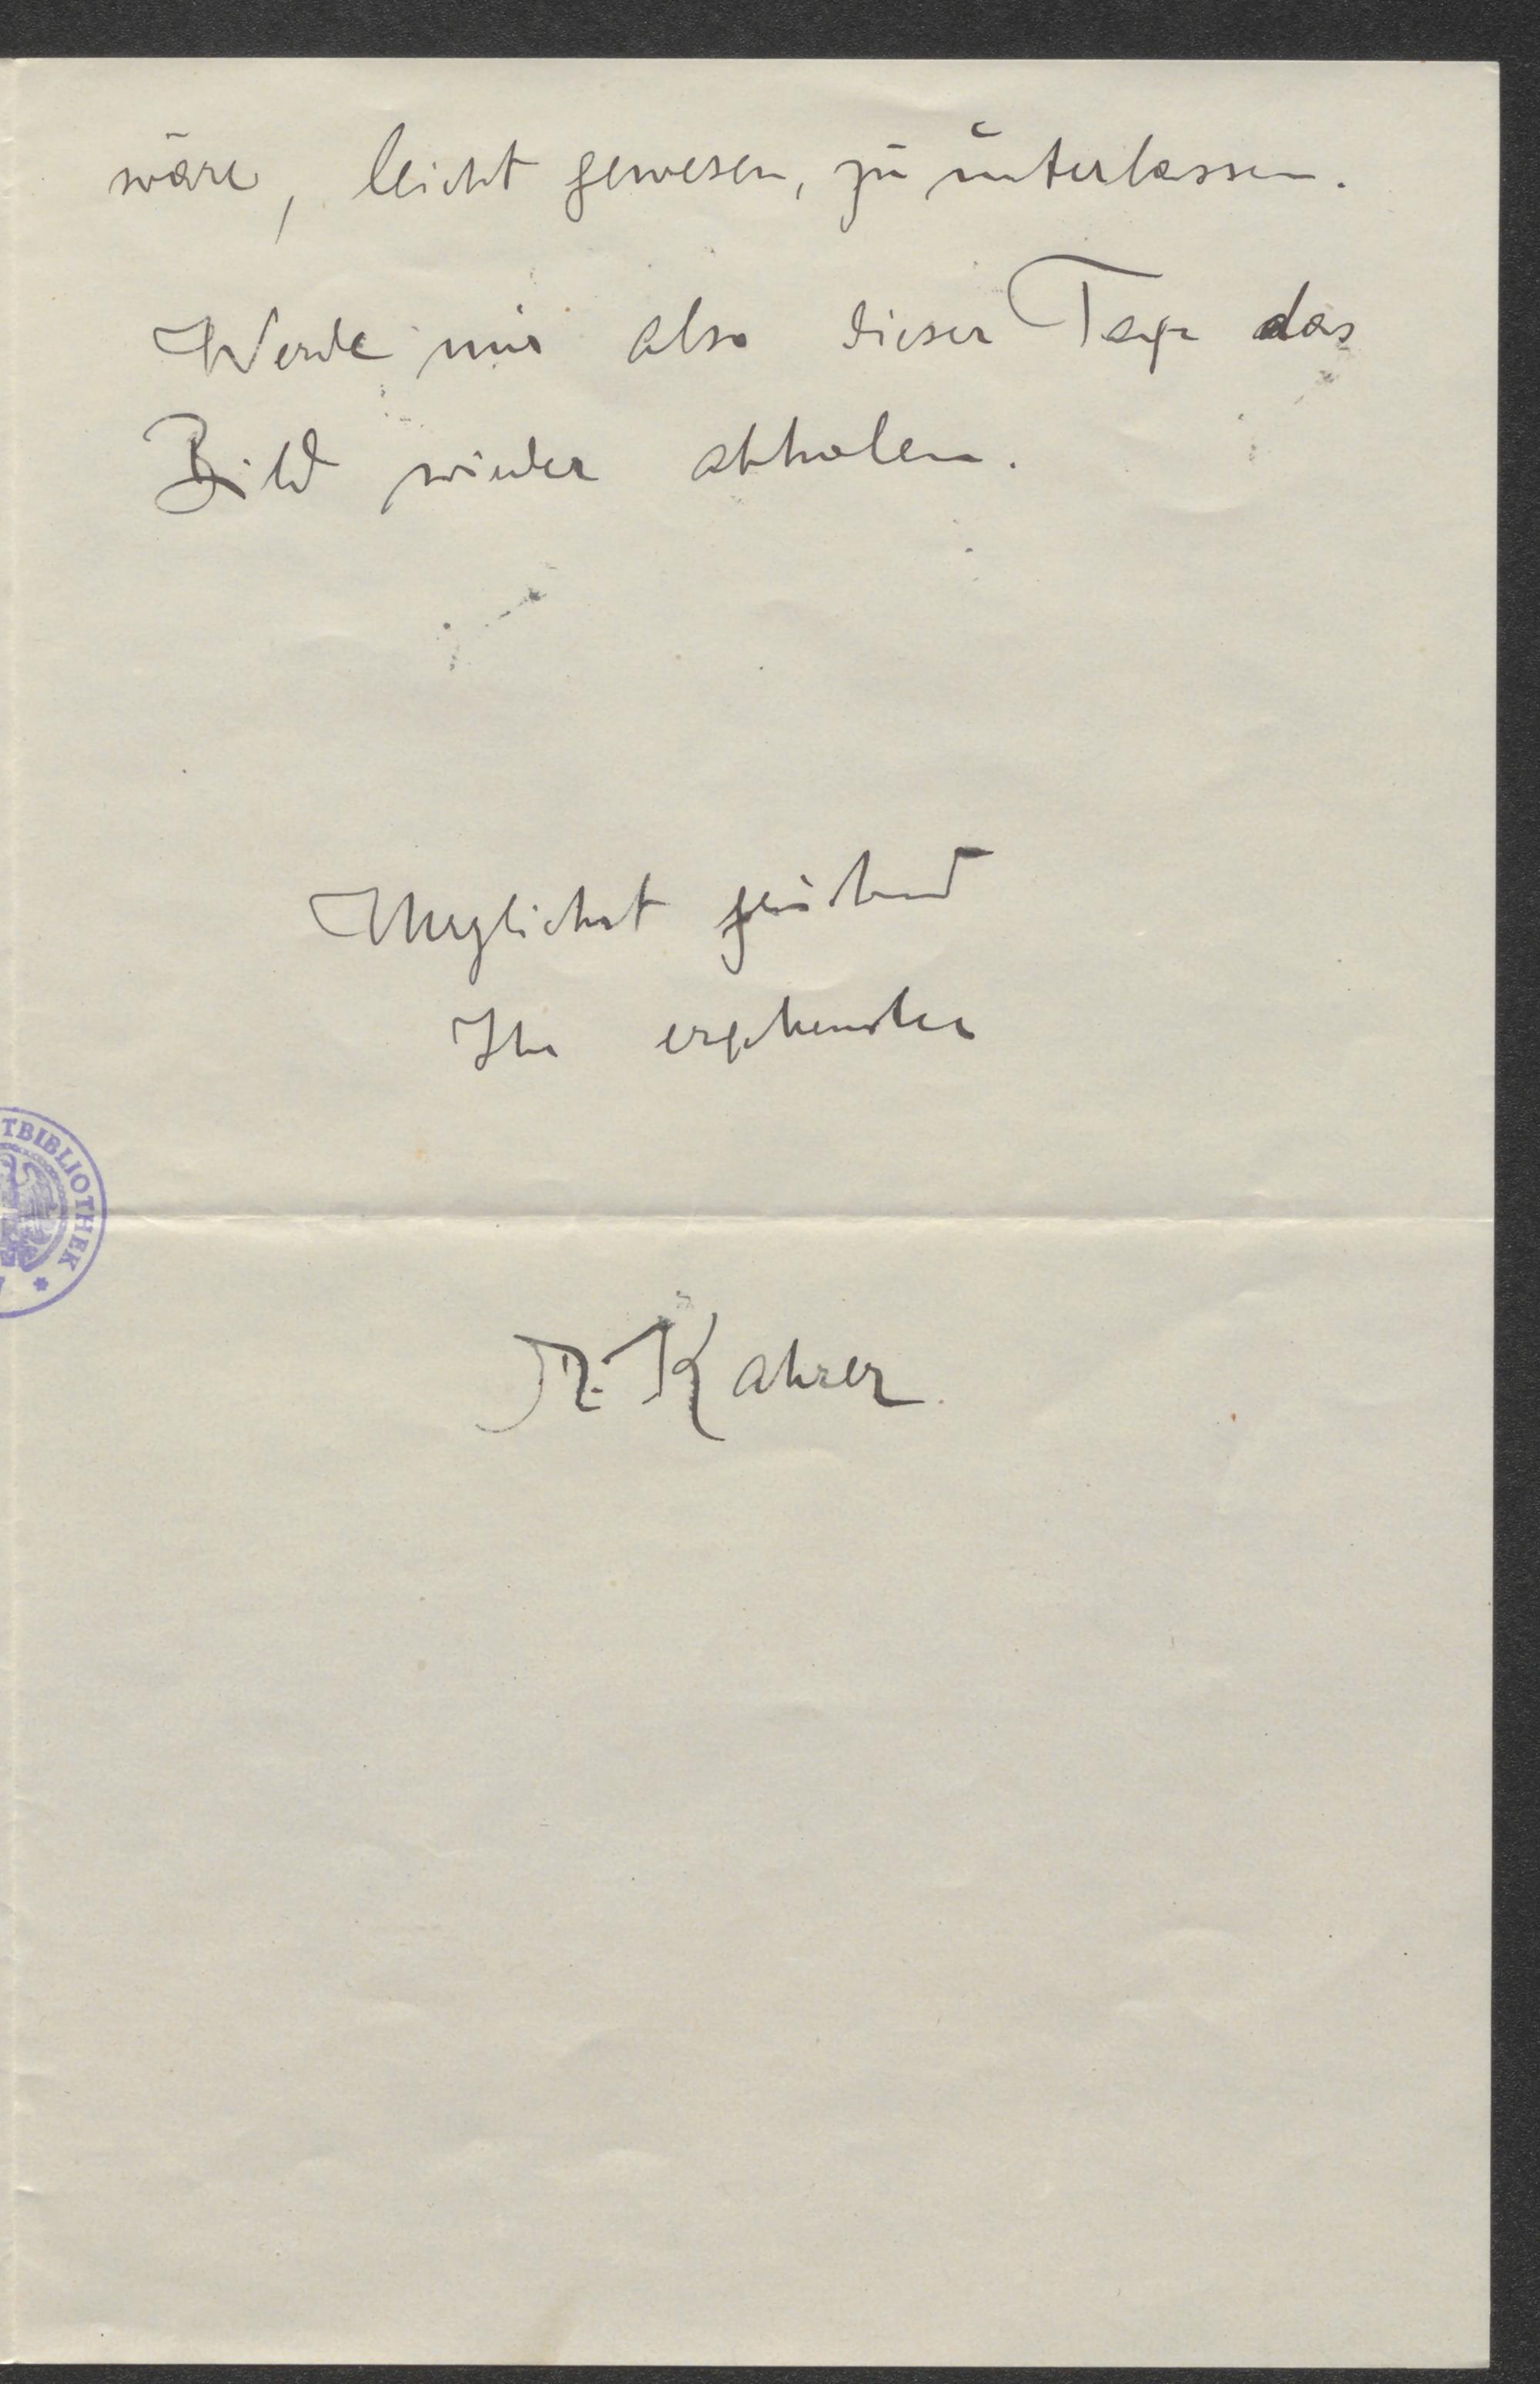 wäre, leicht gewesen, zu unterlassen.
Werde mir also dieser Tage das
Bild wieder abholen.
grüßend
Ihr ergebenster
TBIBLIOTHEK
R. Kahrer